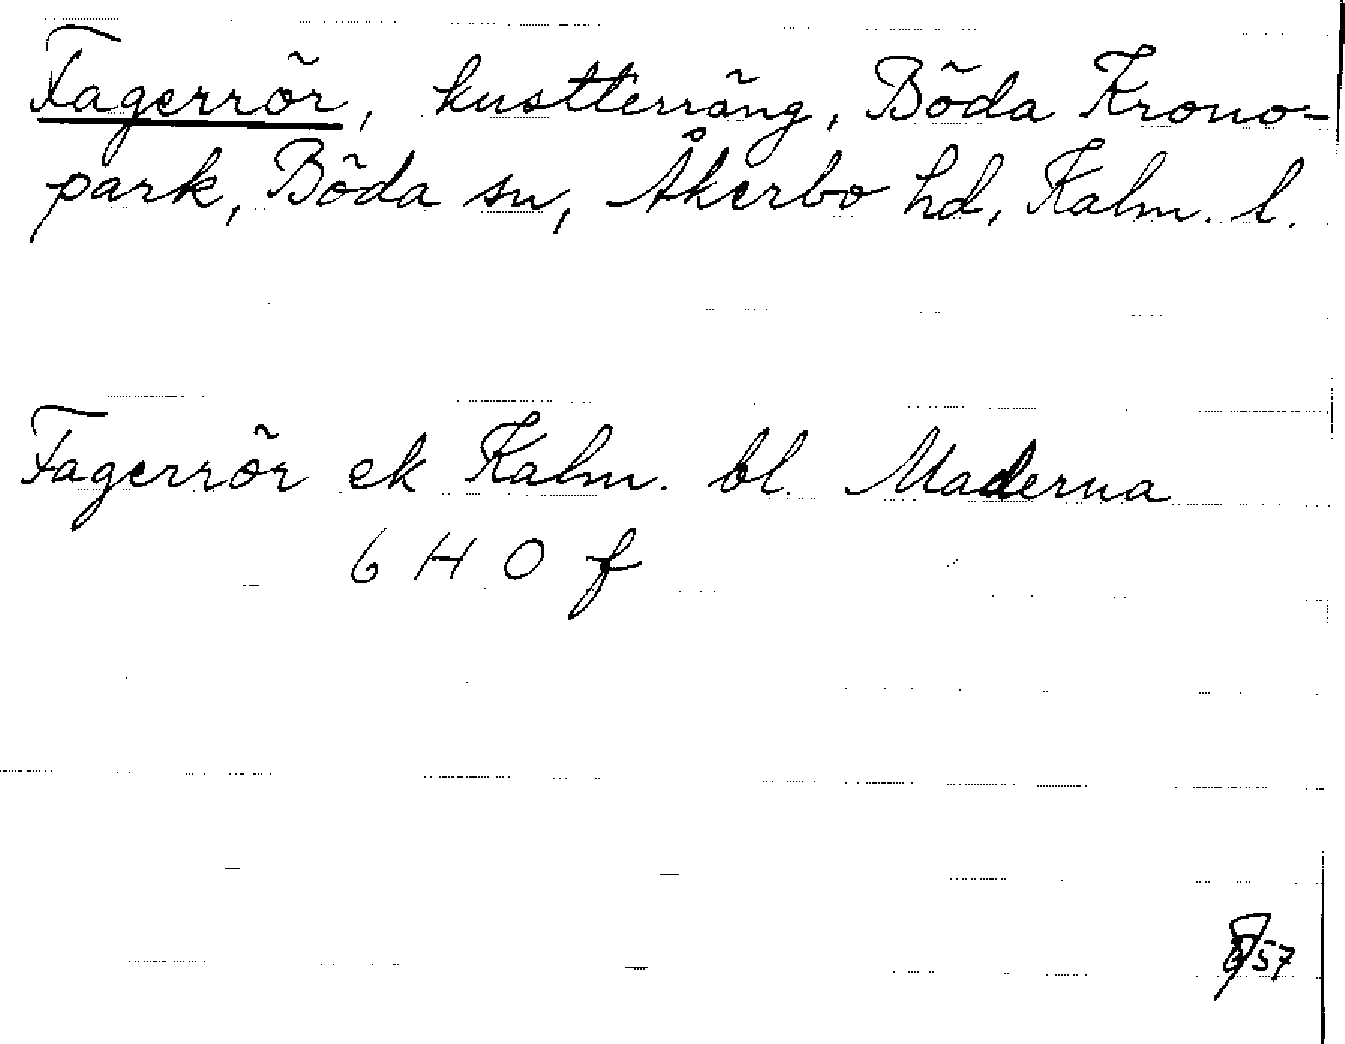 Fagerrör, kustterräng, Böda Krono-
park, Böda sn, Åkerbo hd, Kalm. l.
Fagerrör ek Kalm. bl. Maderna
6 H 0 f
57